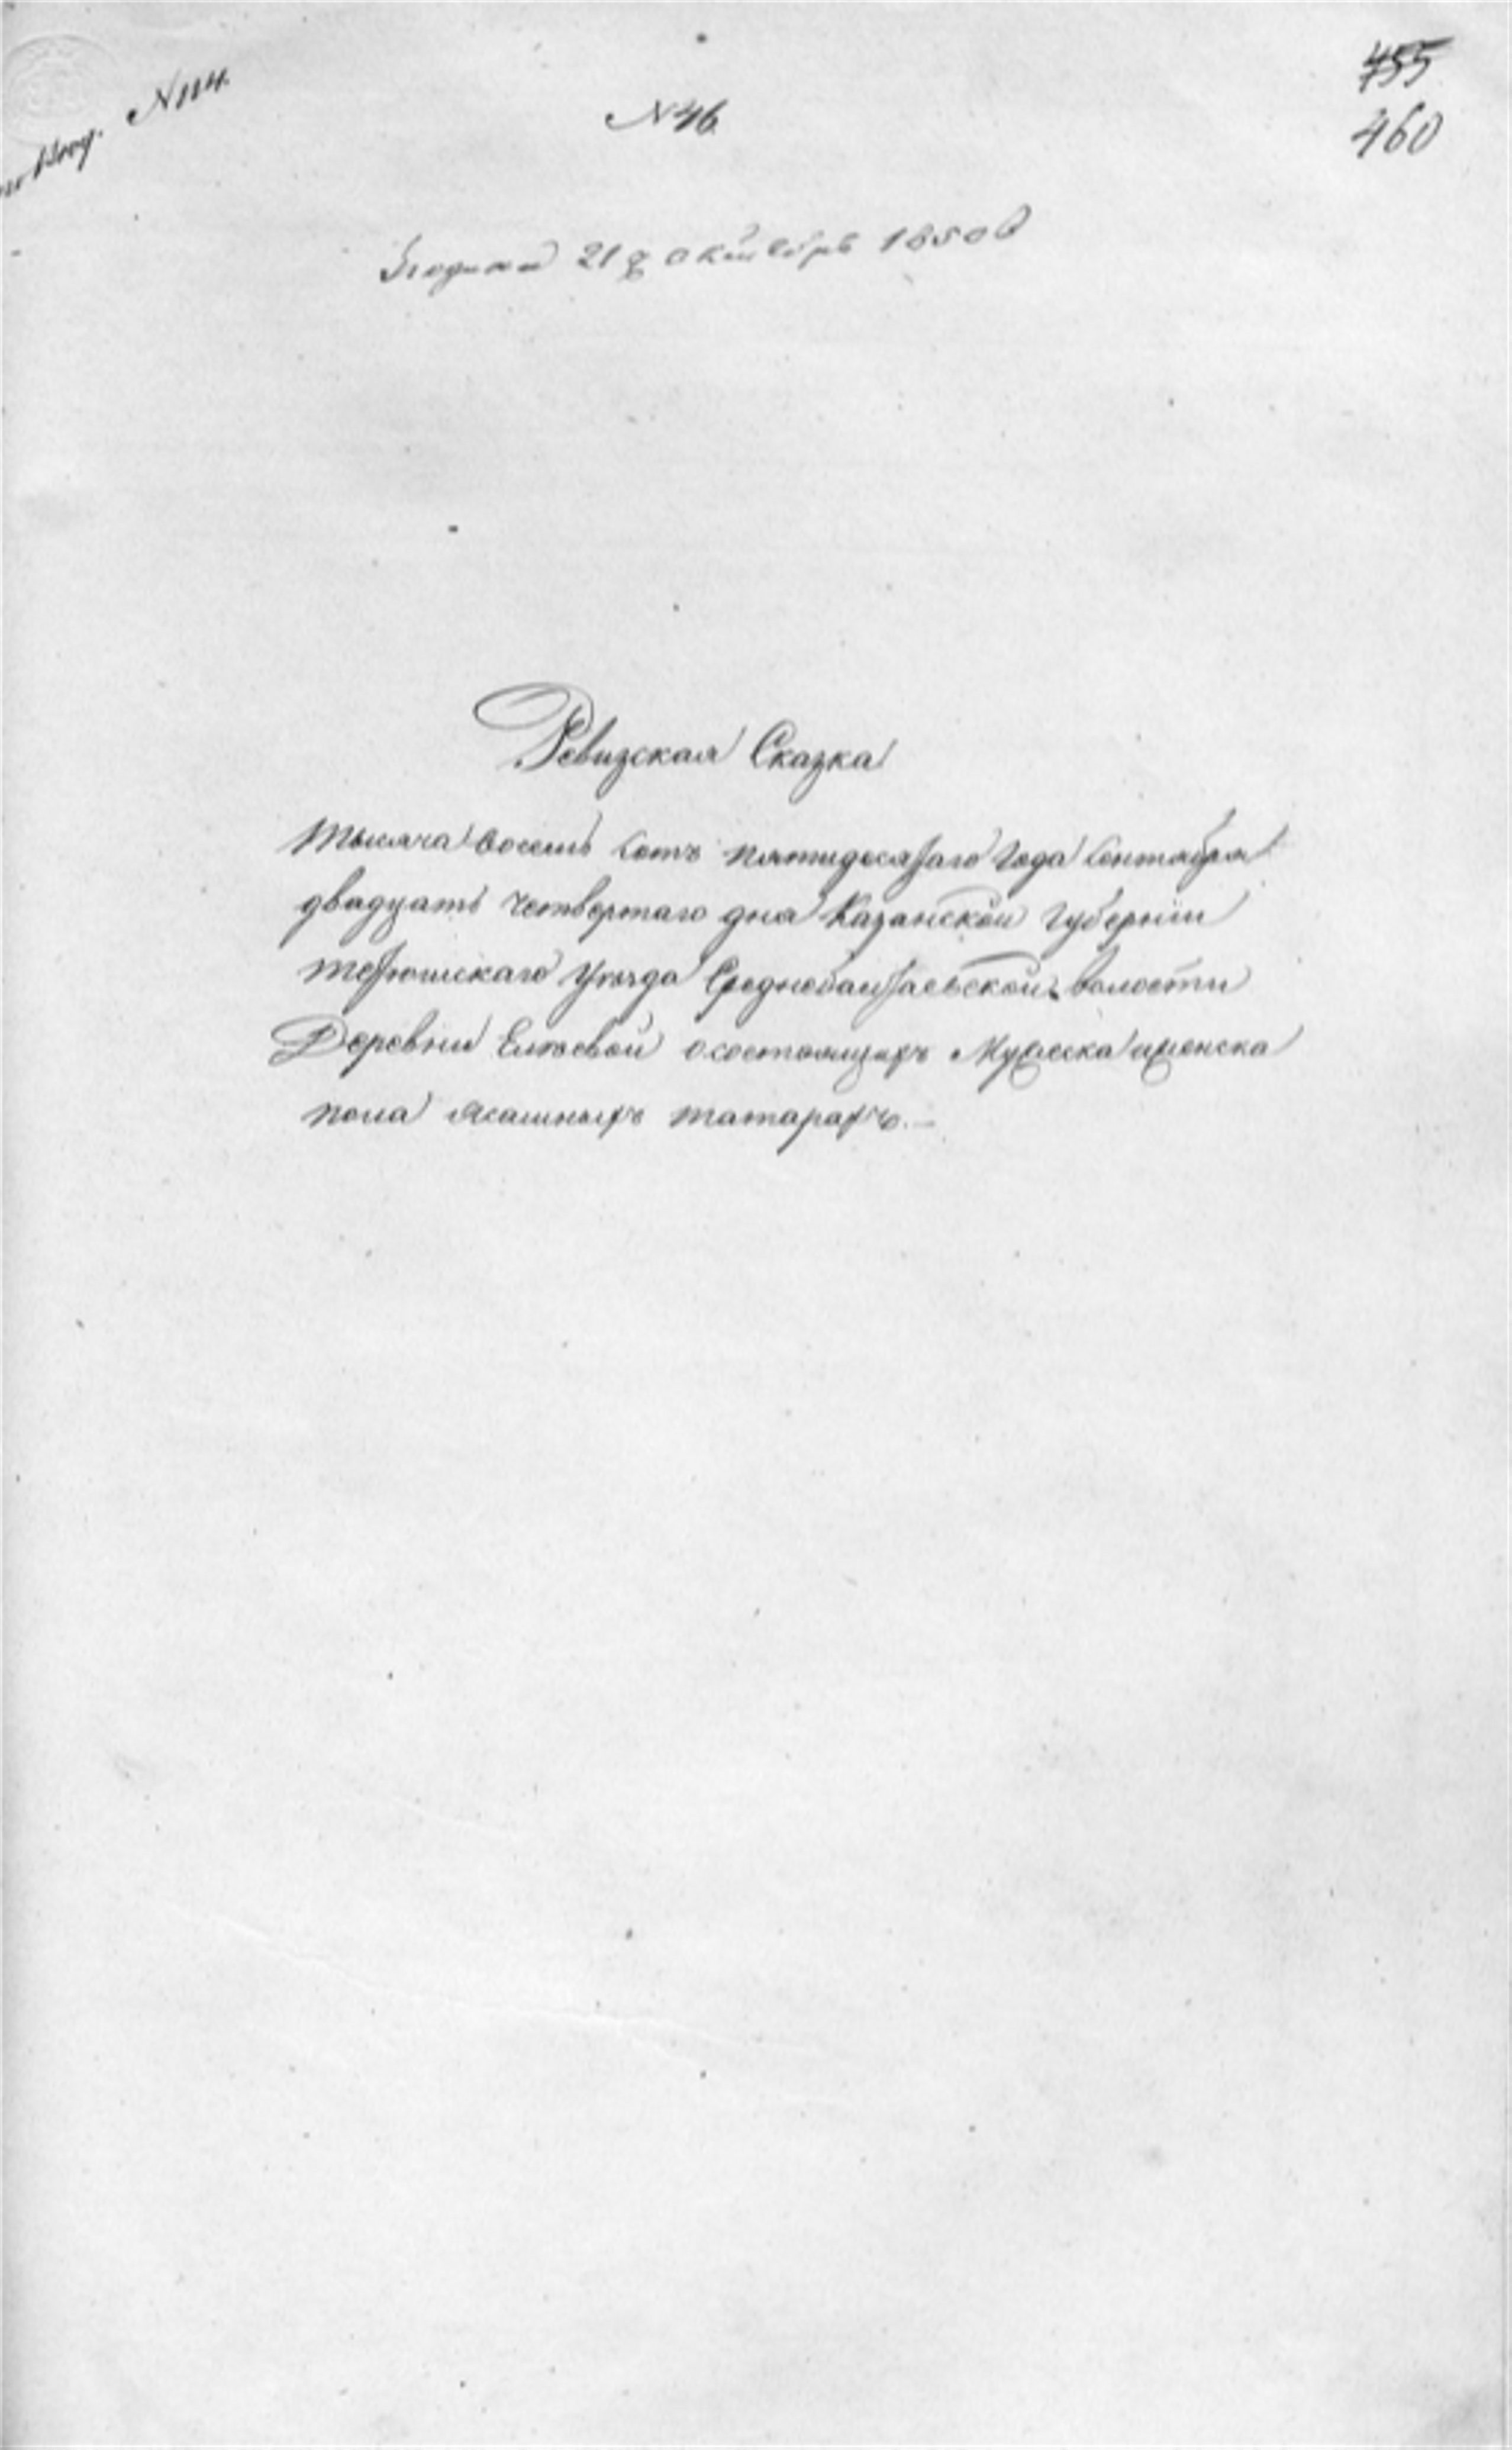 N 114.
N 46.
455
460
21 октября 1850
Ревизская Сказка
тысяча восемь сотъ пятидесятаго года сентября
двадцать четвертаго дня Казанской губернiи
тетюшскаго уѣзда Среднебалтаевской волости
Деревни Елховой о состоящихъ Мужеска иженска
пола ясашныхъ татарахъ.—